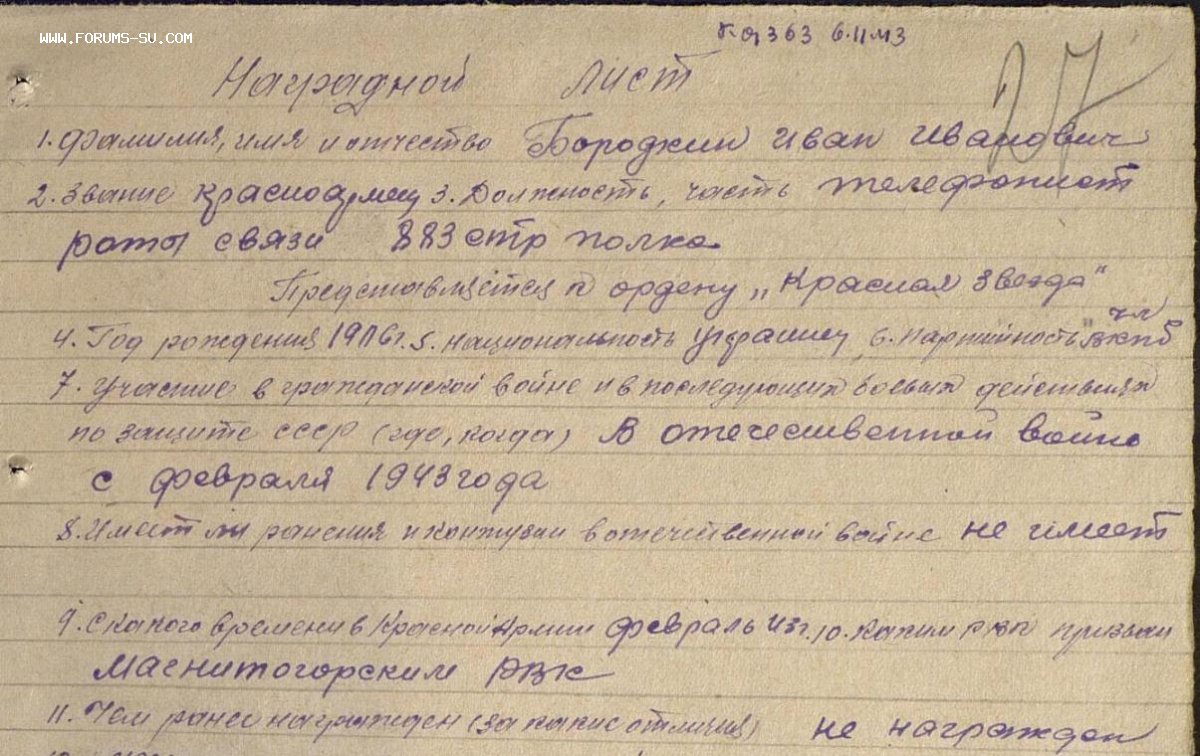 WWW.FORUMS-SU.COM
363 6.11.43
27
Наградной лист
1. Фамилия, имя и отчество Бородкин Иван Иванович
2. Звание красноармеец 3. Должность, часть телефонист
роты связи 883 стр полка
Представляется к ордену „Красная Звезда"
чл
4. Год рождения 1916г. 5. Национальность украинец 6. Партийность ВКПб
7. Участие в гражданской войне и в последующих боевых действиях
по защите СССР (где, когда) В отечественной войне
с февраля 1943 года
8. Имеет ли ранения и контузии в отечественной войне не имеет
9. С какого времени в Красной Армии февраль 43г. 10. Каким РВК призван
Магнитогорским РВК
11. Чем ранее награжден (за какие отличия) не награжден